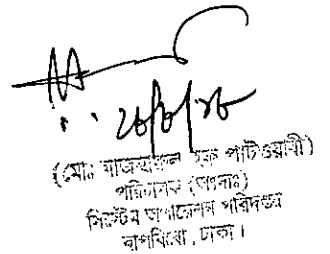 (মোঃ মাজহারুল হক পাটওয়ারী)
পরিচালক (চঃদাঃ)
সিস্টেম অপারেশন পরিদপ্তর
বাপবিবো, ঢাকা।